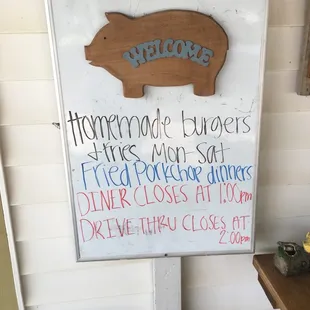 WELCOME
Homemade burgers
+ fries Mon-Sat
Fried Porkchop dinners
DINER CLOSES AT 1:00pm
DRIVE THRU CLOSES AT
2:00pm